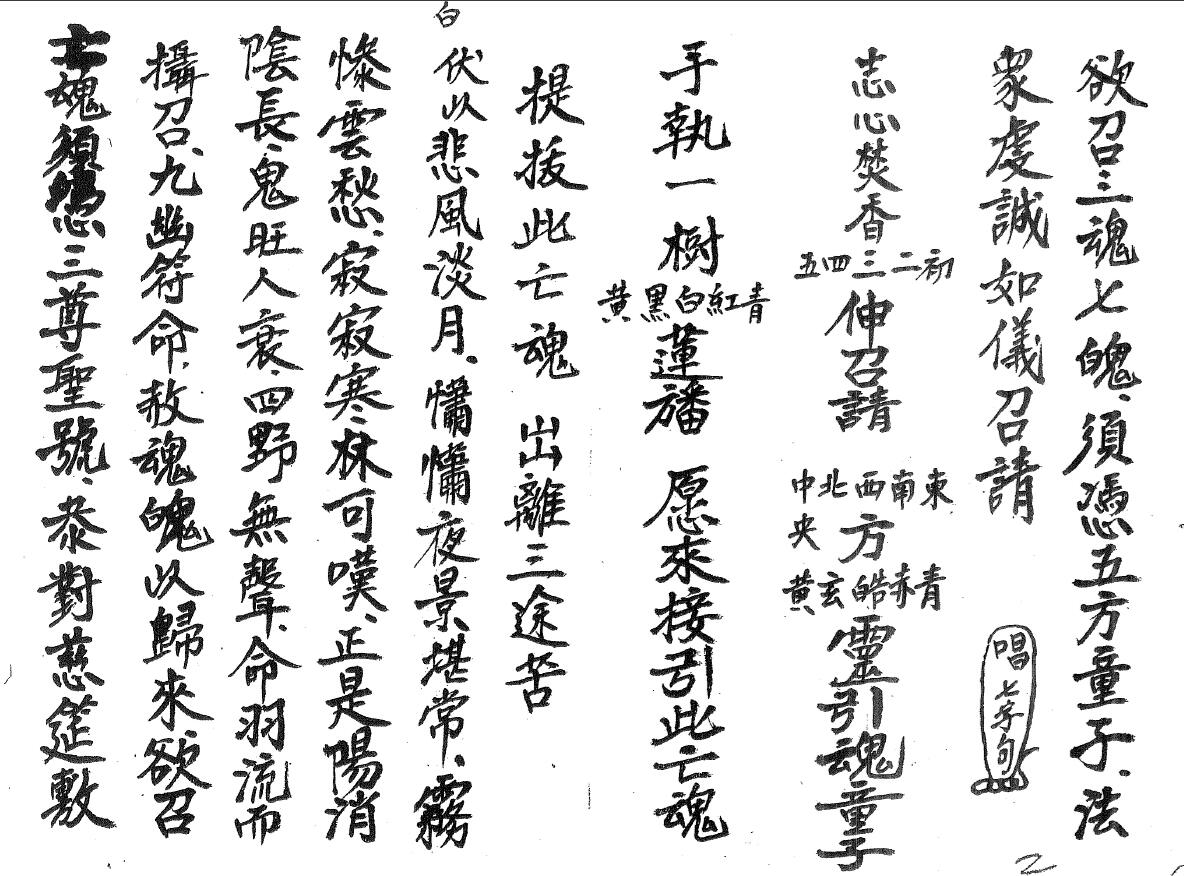 欲召三魂七魄、須憑五方童子、法
衆虔誠如儀召請
唱七字句
志心焚香初二三四五伸召請東南西北中央方青赤皓玄黃靈引魂童子
手執一樹青紅白黑黃蓮旛 愿來接引此亡魂
提拔此亡魂 出離三途苦
白
伏以悲風淡月、慵慵夜景堪常、霧
慘雲愁、寂寂寒林可嘆、正是陽消
陰長、鬼旺人衰、四野無聲、命羽流而
攝召、九幽符命、赦魂魄以歸來、欲召
亡魂須憑三尊聖號、叅對慈筵敷
2